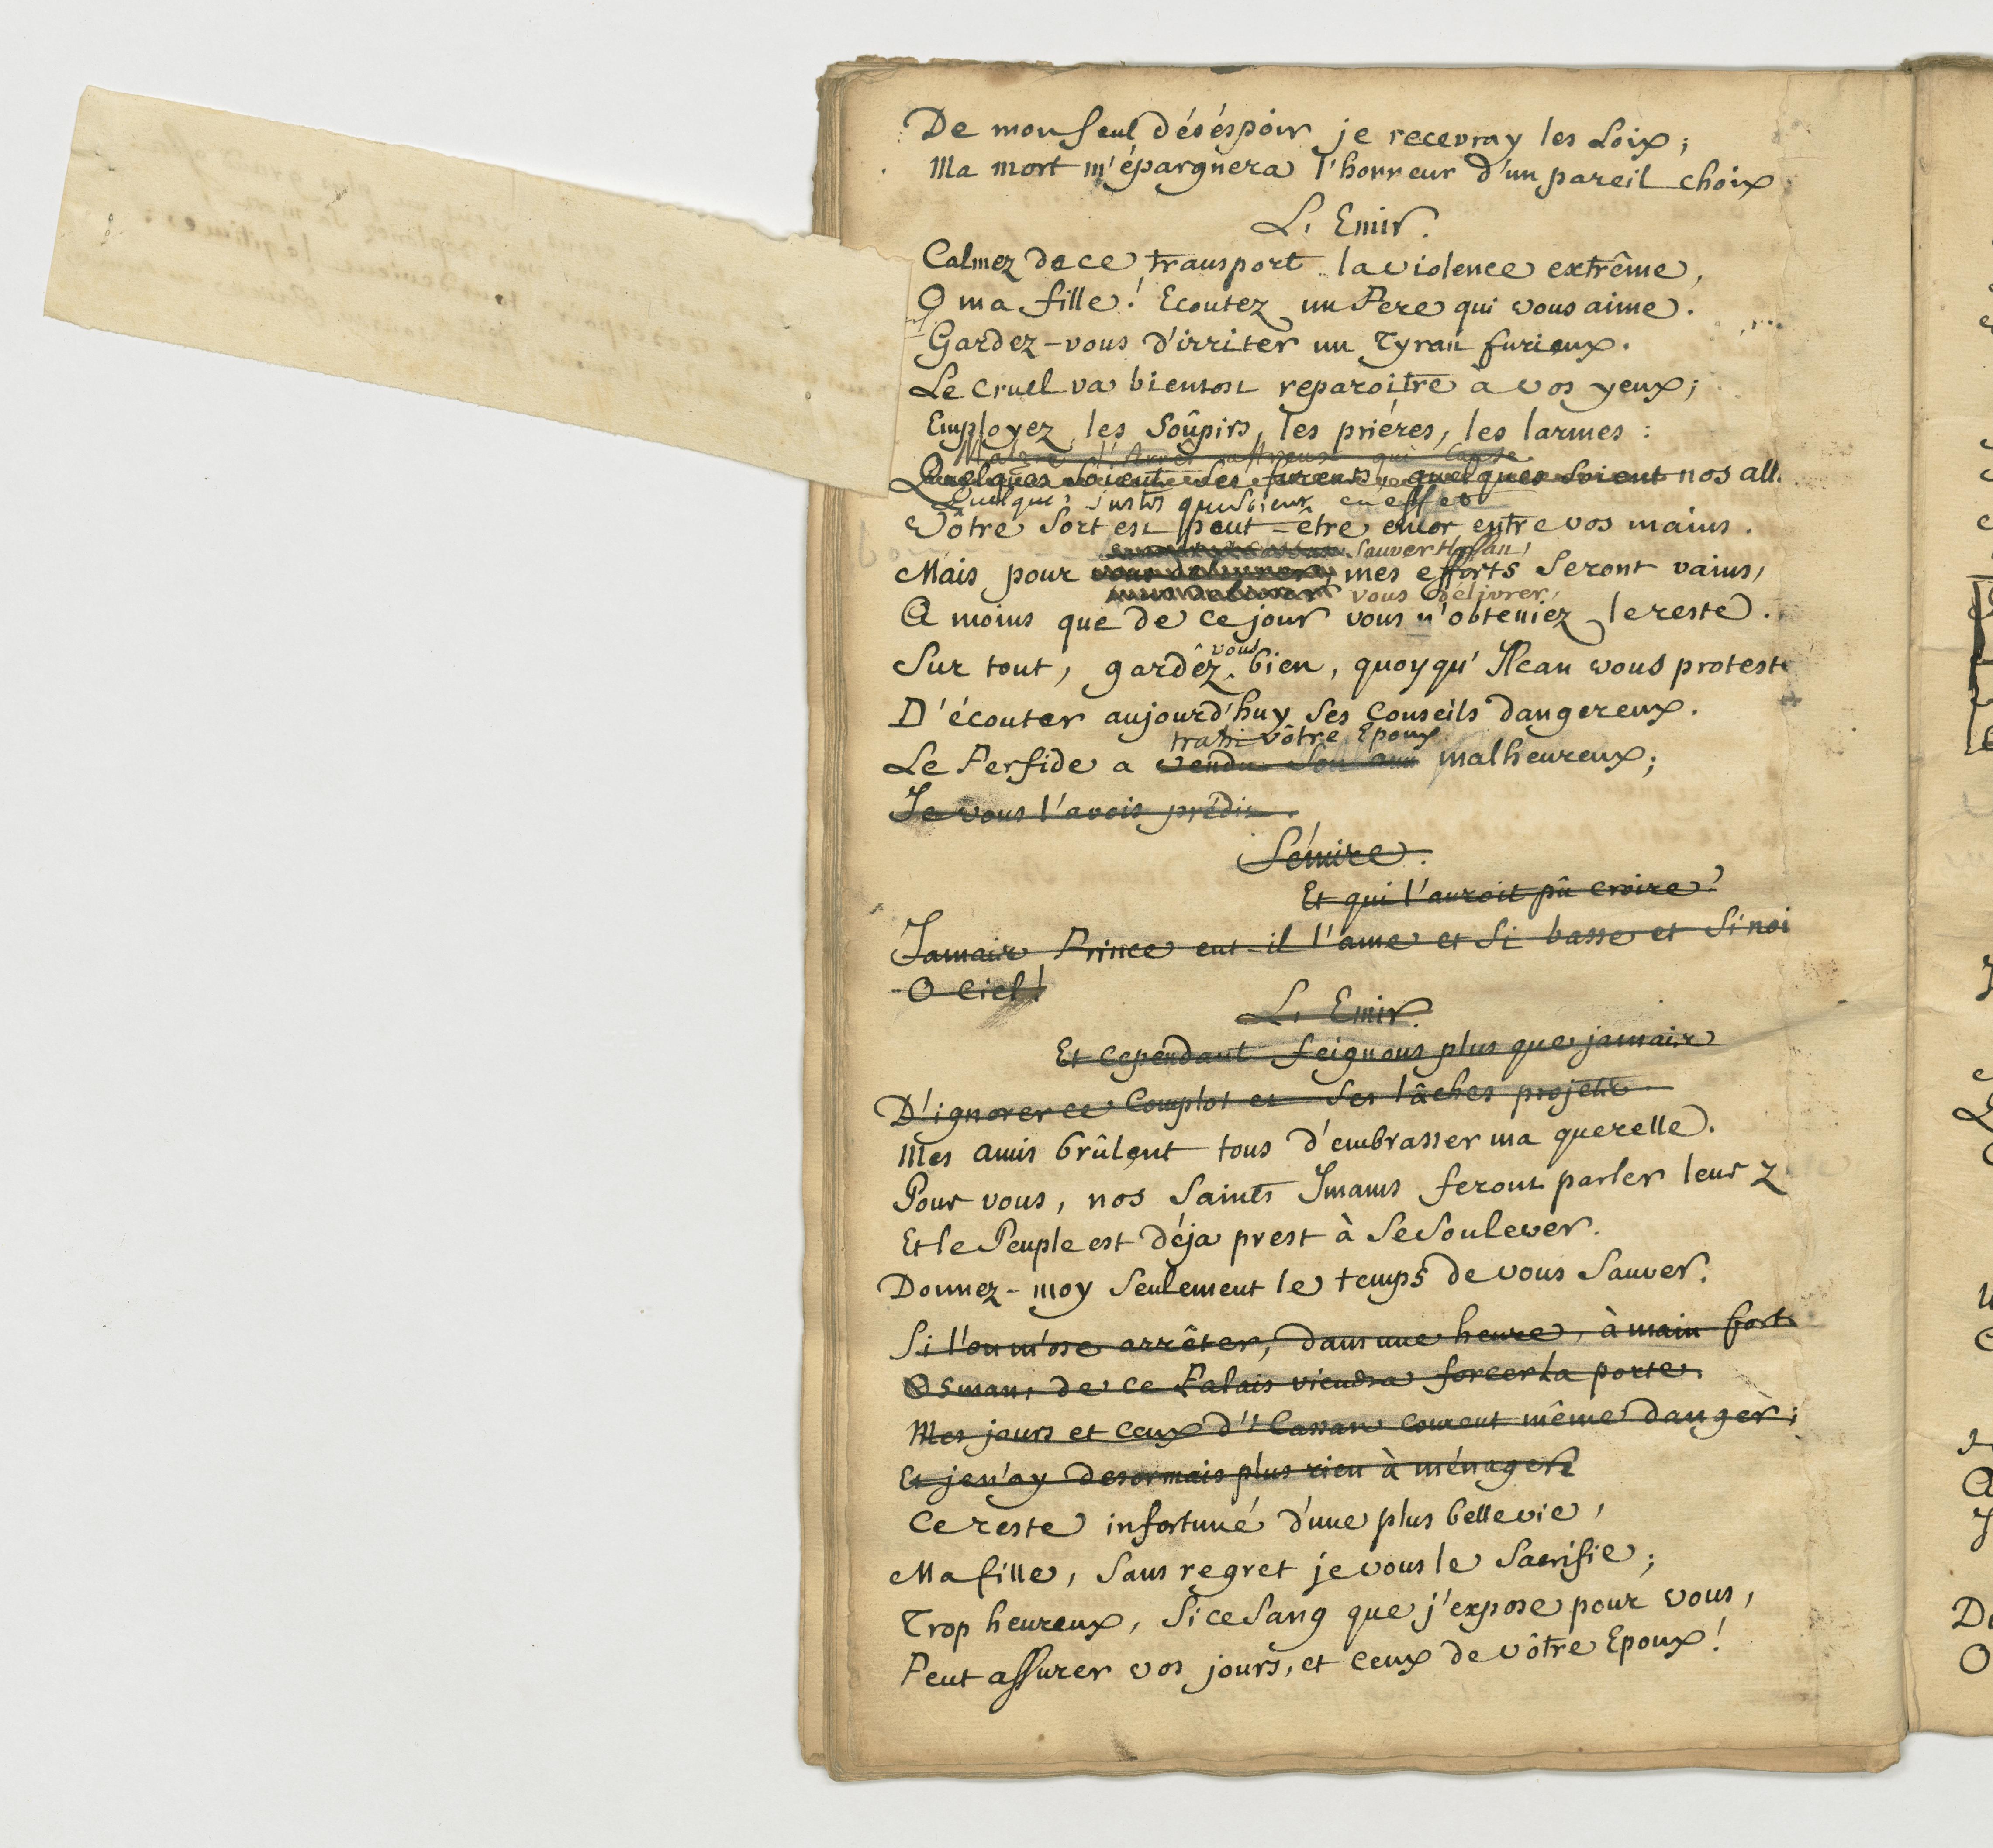 De mon seul déséspoir je recevray les Loix;
Ma mort m'épargnera l'horreur d'un pareil choix
L'Emir.
Calmez de ce transport la violence extrême,
O ma fille! Ecoutez un Pere qui vous aime.
Gardez-vous d'irriter un Tyran furieux.
Le cruel va bientost reparoître à vos yeux;
Employez les Soûpirs, les priéres, les larmes:
Malgré l'Arrêt affreux qui
Quelques soient ses fureurs, quelques soient nos all
Quelques justes que soient en effet
Vôtre Sort est peut-être encor entre vos mains.
Sauver Hassan,
Mais pour vous delivrer, mes efforts seront vains,
vous délivrer,
A moins que de ce jour vous n'obteniez le reste.
vous
Sur tout, gardêz bien, quoyqu'Ilcan vous proteste
D'écouter aujourd'huy ses Conseils dangereux.
trahi vôtre Epoux
Le Perfide a vendu son ami malheureux;
Je vous l'avois prédit.
Sémire.
Et qui l'auroit pû croire?
Jamais Prince eut-il l'ame et si basse et si noi
O Ciel!
L'Emir.
Et cependant feignons plus que jamais
D'ignorer ce Complot et ses lâches projets.
Mes amis brûlent tous d'embrasser ma querelle.
Pour vous, nos saints Imams feront parler leur z
Et le Peuple est déja prest à se soulever.
Donnez-moy seulement le temps de vous sauver.
Si l'on m'ose arrêter, dans une heure, à main forte
Osman, de ce Palais viendra forcer la porte.
Mes jours et ceux d'Hassan courent même danger;
Et je n'ay desormais plus rien à ménager.
Ce reste infortuné d'une plus belle vie,
Ma fille, sans regret je vous le sacrifie;
Trop heureux, si ce sang que j'expose pour vous,
Peut assurer vos jours, et ceux de vôtre Epoux!